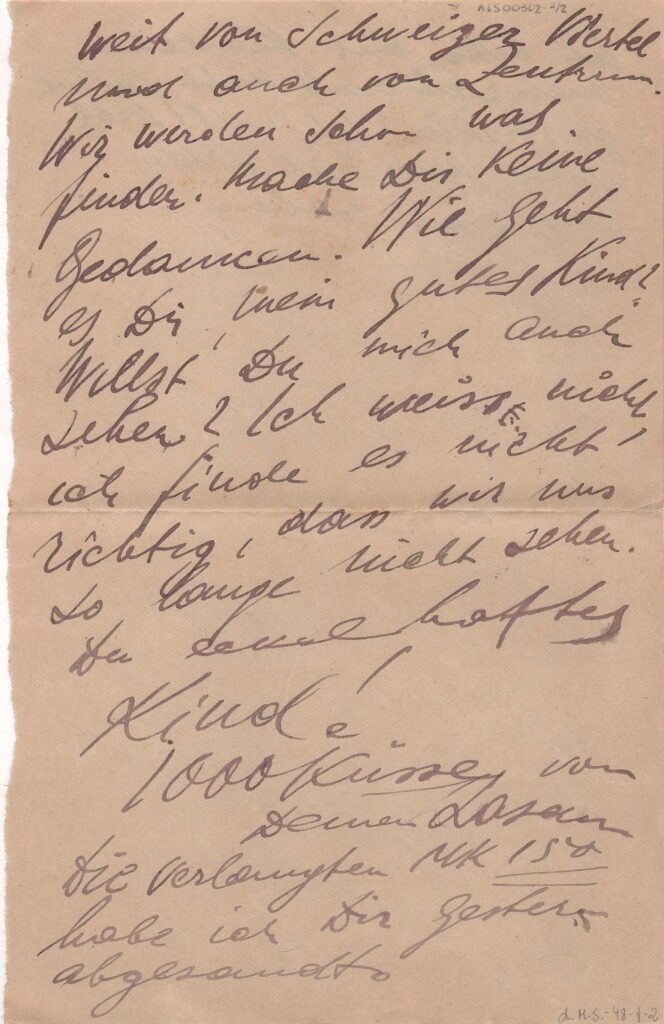 ALS00902 2/2
weit von Schweizer Viertel
und auch von Zentrum.
Wir werden schon was
finden. Mache Dir keine
Gedancen. Wie geht
es Dir, mein gutes Kind?
Willst Du mich auch
sehen? Ich weiss nicht,
ich finde es nicht
richtig, dass wir uns
so lange nicht sehen.
Du ekelhaftes
Kind!
1000 Küsse von
Deinem
Die verlangten MK 150
habe ich Dir gestern
abgesandt.